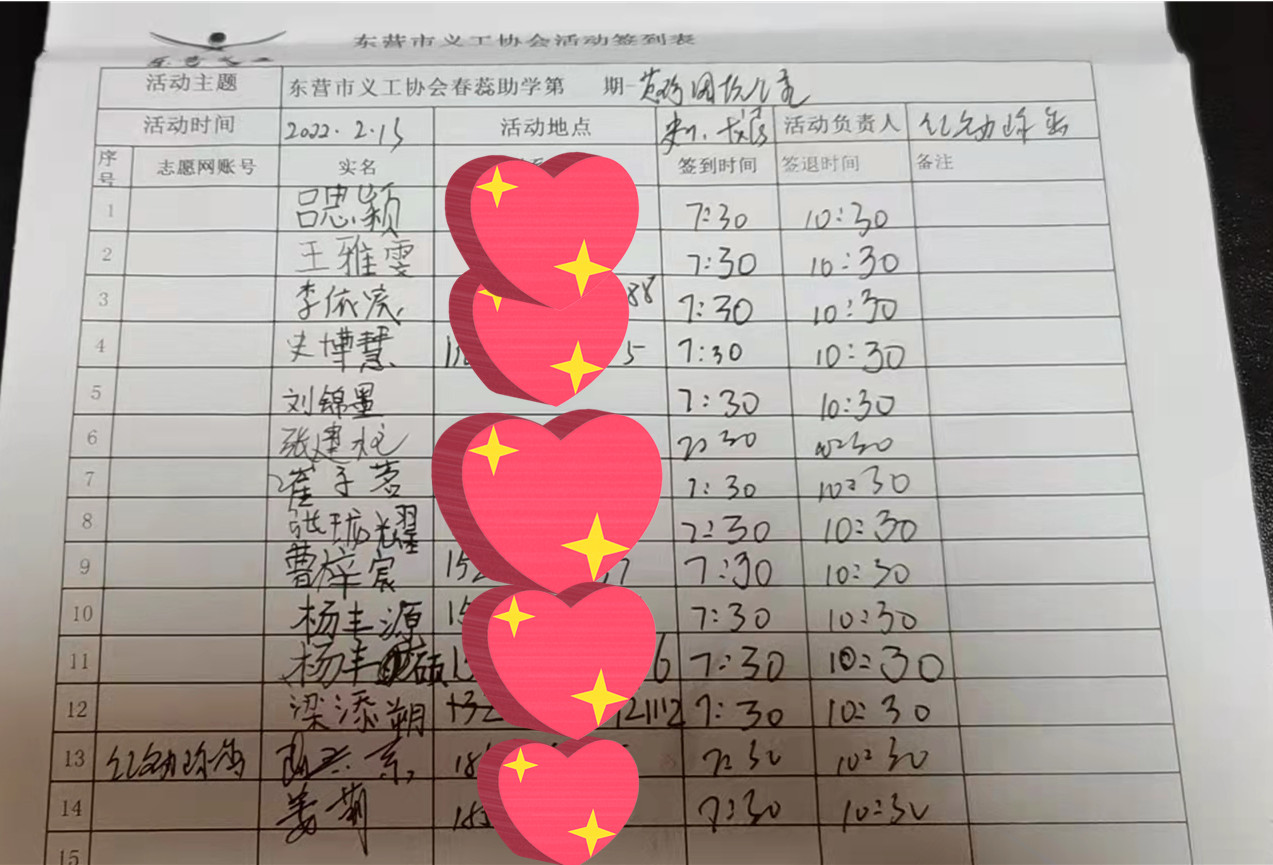 东营市义工协会活动签到表
东营义工
活动主题 东营市义工协会春蕊助学第 期-
活动时间 2022.2.13 活动地点 活动负责人 红动珍缘
序号 志愿网账号 实名 签到时间 签退时间 备注
1 吕思颖 7:30 10:30
2 王雅雯 7:30 10:30
3 李依宸 88 7:30 10:30
4 史博慧 5 7:30 10:30
5 刘锦墨 7:30 10:30
6 张建 7:30 10:30
7 崔子茗 7:30 10:30
8 张耀 7:30 10:30
9 曹梓宸 15 7 7:30 10:30
10 杨丰源 15 7:30 10:30
11 杨丰硕 6 7:30 10:30
12 梁添朔 132 121112 7:30 10:30
13 18 7:30 10:30
14 姜菊 7:30 10:30
15